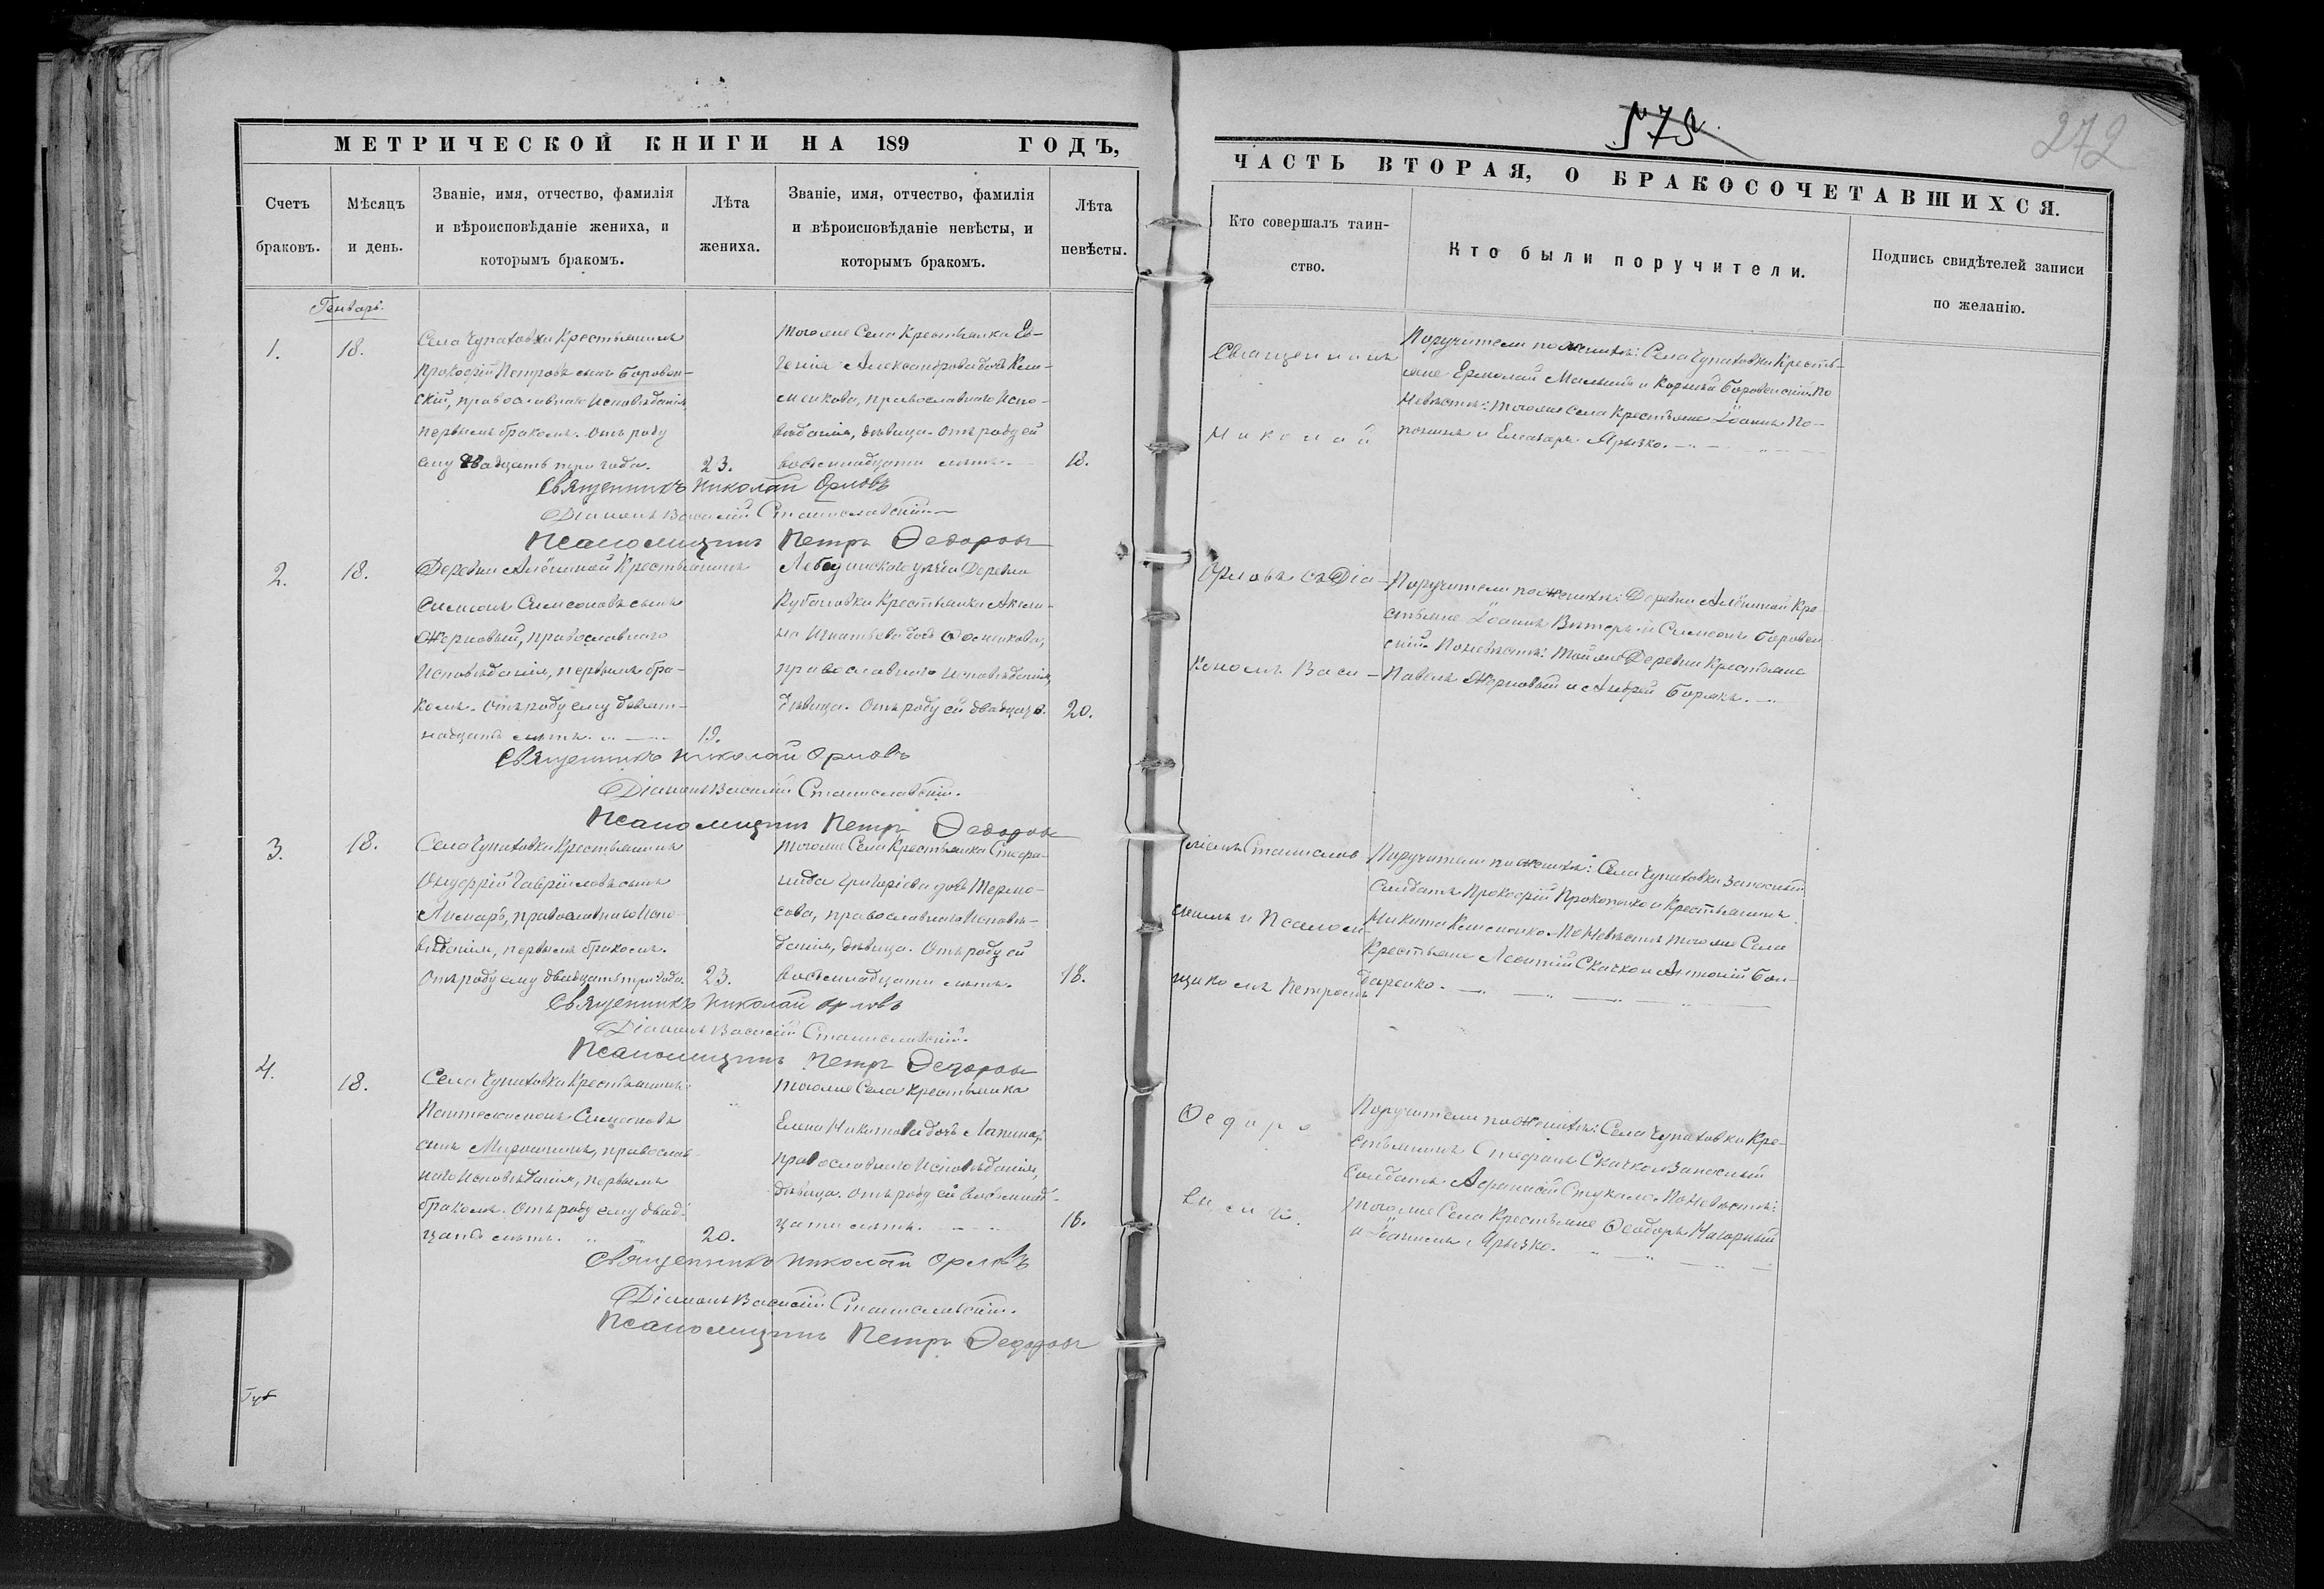 МЕТРИЧЕСКОЙ КНИГИ НА 189 ГОДЪ,
Счетъ браковъ.
Мѣсяцъ и день.
Званіе, имя, отчество, фамилія
и вѣроисповѣданіе жениха, и
которымъ бракомъ.
Лѣта жениха.
Званіе, имя, отчество, фамилія
и вѣроисповѣданіе невѣсты, и
которымъ бракомъ.
Лѣта невѣсты.
Генварь.
1.
18.
Села Чупаховки Крестьянинъ
Прокофій Петровъ сынъ Боровен-
скій, православнаго Исповѣданія,
первымъ бракомъ. Отъ роду
ему двадцать три года.
23.
тогоже Села Крестьянка Ев-
генія Александрова дочь Кли-
менкова, православнаго Испо-
вѣданія, дѣвица. Отъ роду ей
восемнадцати лѣтъ.
18.
Священникъ Николай Орловъ
Діаконъ Василій Станиславскій
Псаломщикъ Петръ Ѳедоровъ
2.
18.
Деревни Алёшиной Крестьянинъ
Симеонъ Симеоновъ сынъ
Жерновый, православнаго
Исповѣданія, первымъ бра-
комъ. Отъ роду ему девят-
надцать лѣтъ.
19.
Лебединскаго уѣзда Деревни
Кубановки Крестьянка Акили-
на Игнатьева дочь
православнаго исповѣданія,
дѣвица. Отъ роду ей двадцать.
20.
Священникъ Николай Орловъ
Діаконъ Василій Станиславскій.
Псаломщикъ Петръ Ѳедоровъ
3.
18.
Села Чупаховки Крестьянинъ
Онуфрій Гавріиловъ сынъ
Лимарь, православнаго Испо-
вѣданія, первымъ бракомъ.
Отъ роду ему двадцать три года.
23.
тогоже Села Крестьянка Стефа-
нида Григоріева дочь Термо-
сова, православнаго Исповѣ-
данія, дѣвица. Отъ роду ей
восемнадцати лѣтъ.
18.
Священникъ Николай Орловъ
Діаконъ Василій Станиславскій.
Псаломщикъ Петръ Ѳедоровъ
4.
18.
Села Чупаховки Крестьянинъ
Пантелеимонъ Симеоновъ
сынъ Мирошникъ, православ-
наго Исповѣданія, первымъ
бракомъ. Отъ роду ему двад-
цать лѣтъ.
20.
тогоже Села Крестьянка
Елена Никитова дочь Лапина,
православнаго Исповѣданія,
дѣвица. Отъ роду ей восемнад-
цати лѣтъ.
18.
Священникъ Николай Орловъ
Діаконъ Василій Станиславскій.
Псаломщикъ Петръ Ѳедоровъ
572
272
ЧАСТЬ ВТОРАЯ, О БРАКОСОЧЕТАВШИХСЯ.
Кто совершалъ таин-
ство.
Кто были поручители.
Подпись свидѣтелей записи
по желанію.
Священникъ
Николай
Орловъ съ Діа-
кономъ Васи-
ліемъ Станислав
скимъ и Псалом-
щикомъ Петромъ
Ѳедоро
вымъ.
Поручители по женихѣ: Села Чупаховки Кресть-
яне Ермолай и Корнилій Боровенскій. По
Невѣстѣ: тогоже Села Крестьяне Іоаннъ По-
и Елеазаръ Ярызко.
Поручители по женихѣ: Деревни Алёшиной Кре-
стьяне Іоаннъ Вихтерь и Симеонъ Боровен
скій. По невѣстѣ: той же Деревни Крестьяне
Павелъ Жерновый и Андрей Борякъ.
Поручители по женихѣ: Села Чупаховки Запасный
Солдатъ Прокофій Прокопенко и Крестьянинъ
Никита Клименко. По Невѣстѣ тогоже Села
Крестьяне Леонтій Скачко и Антоній Бон-
даренко.
Поручители по женихѣ: Села Чупаховки Кре-
стьянинъ Стефанъ Скачко и Запасный
Солдатъ Афанасій Стукало. По Невѣстѣ:
тогоже Села Крестьяне Ѳеодоръ Нагорный
и Даніилъ Ярызко.